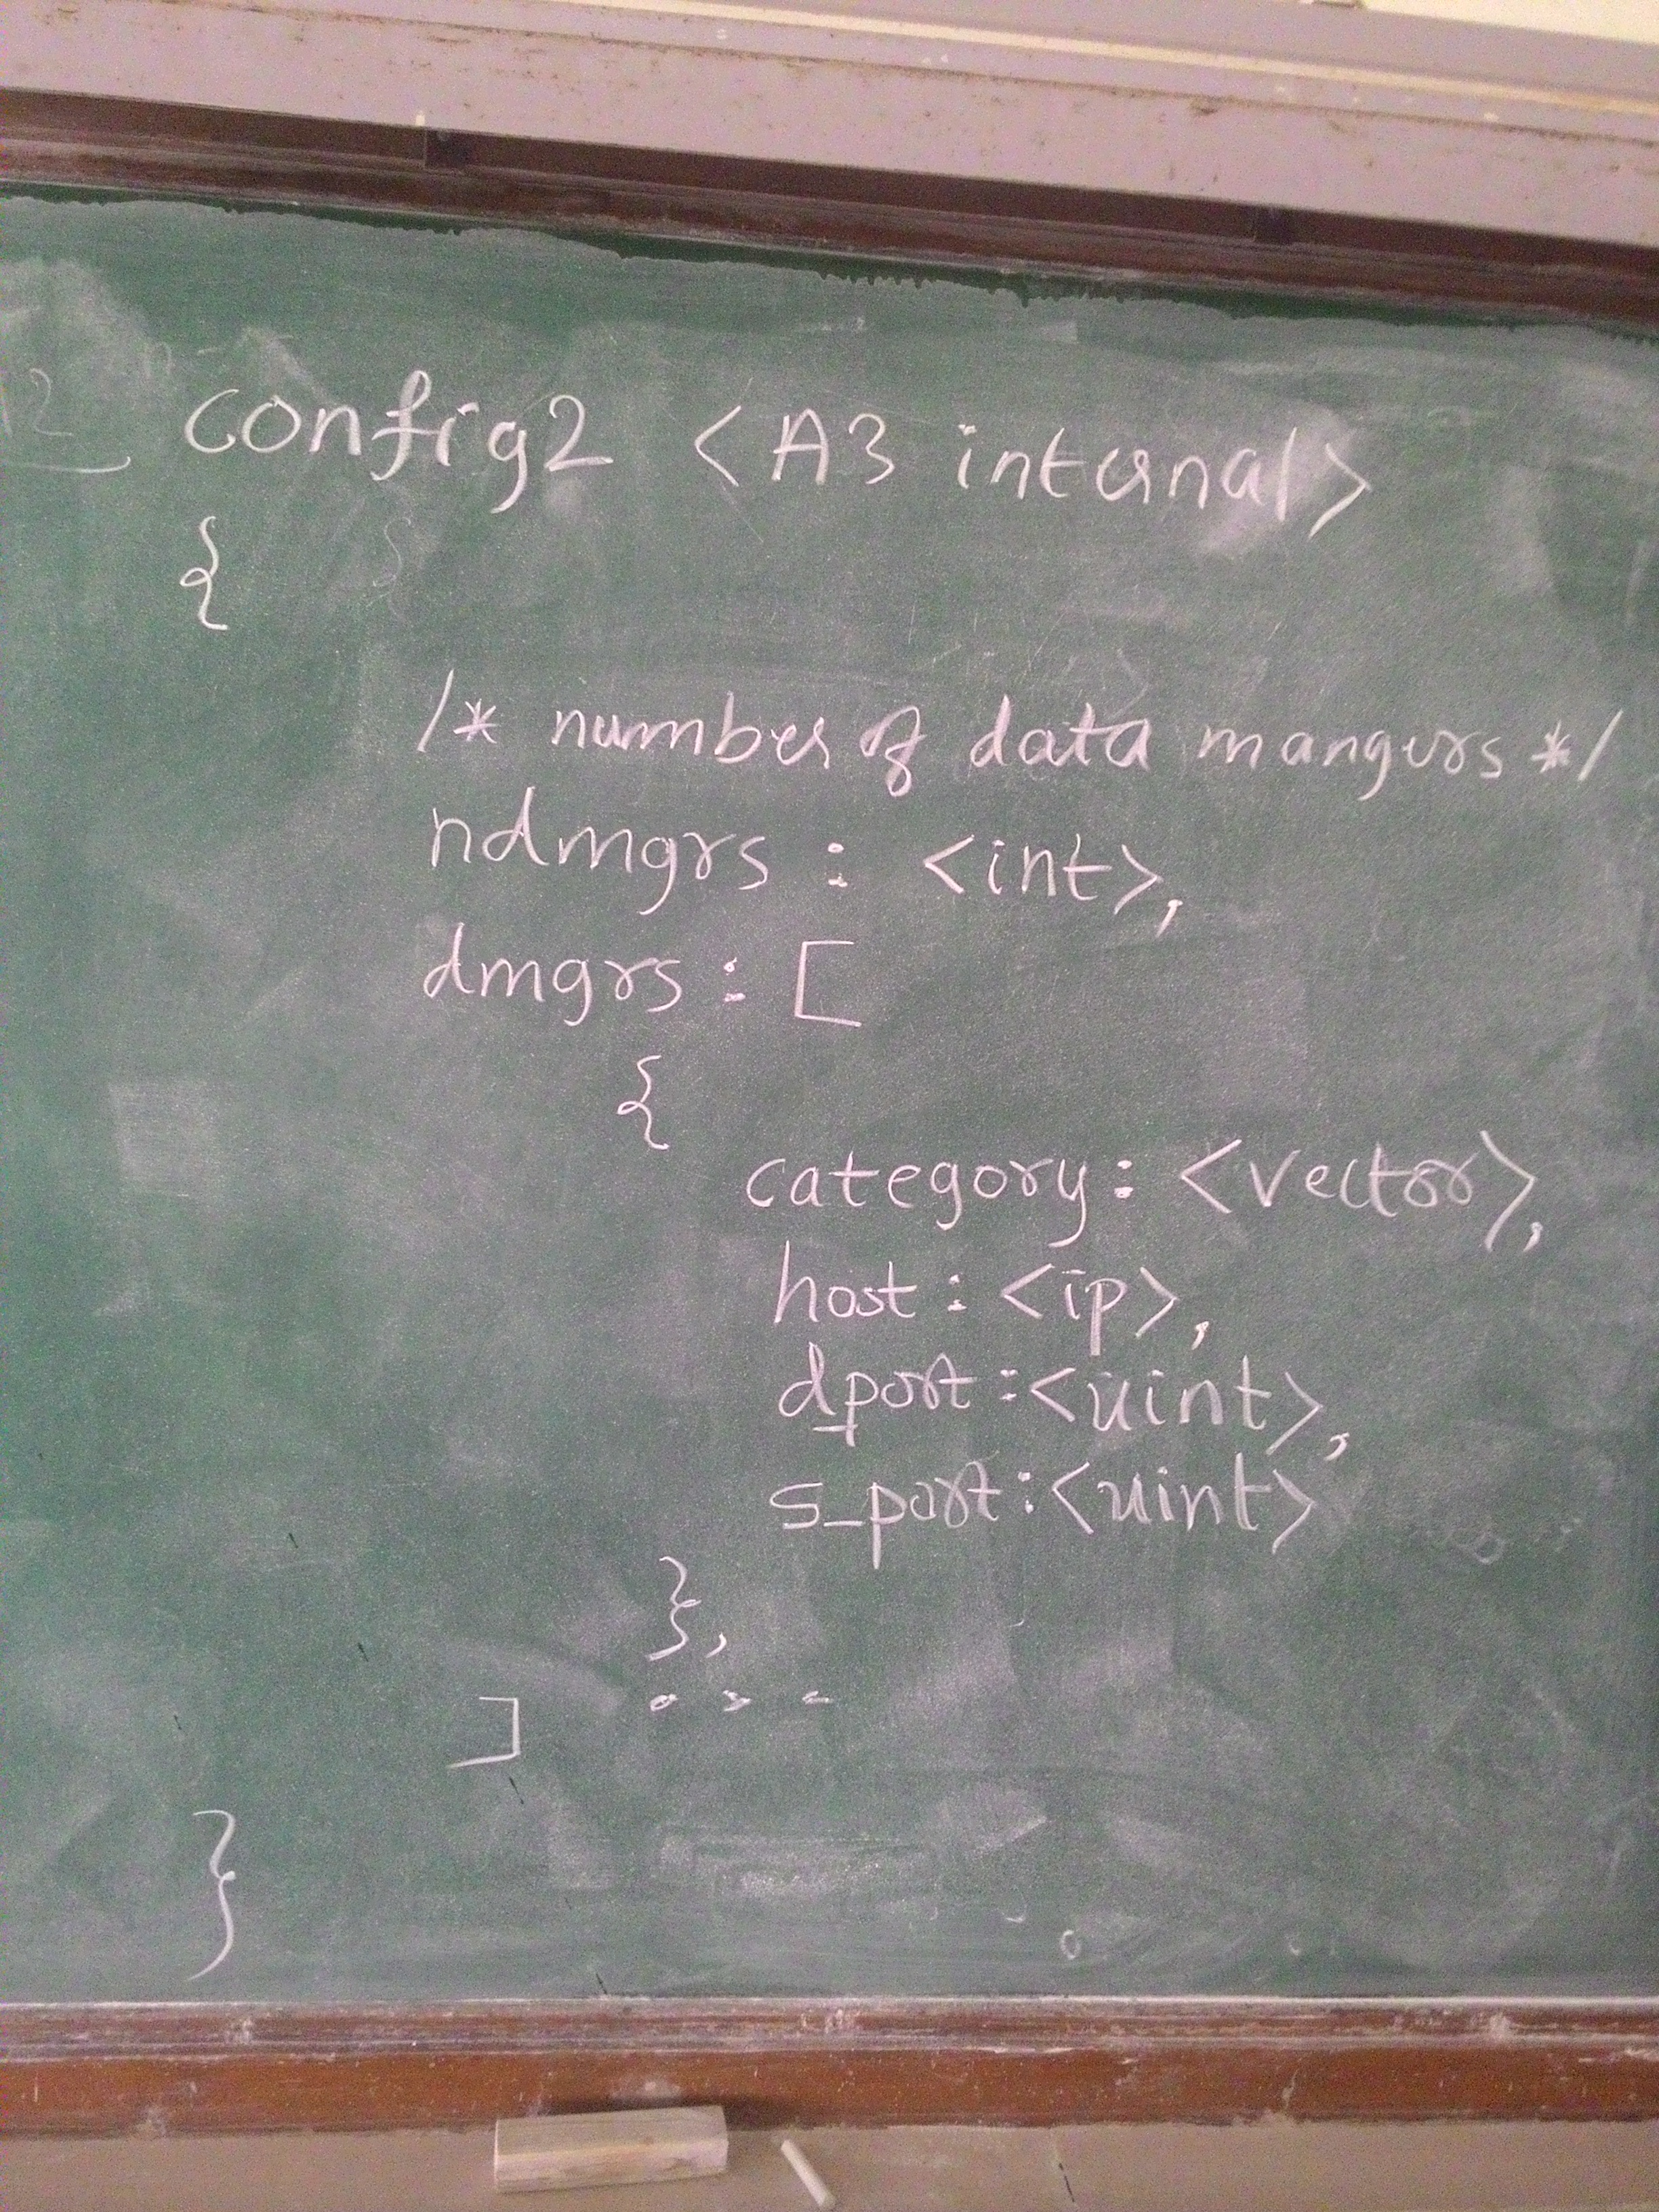 config2 <A3 internal>
{
/* number of data mangers */
ndmgrs : <int>,
dmgrs : [
{
category : <vector>,
host : <ip>,
d_port : <uint>,
s_port : <uint>
},
...
]
}